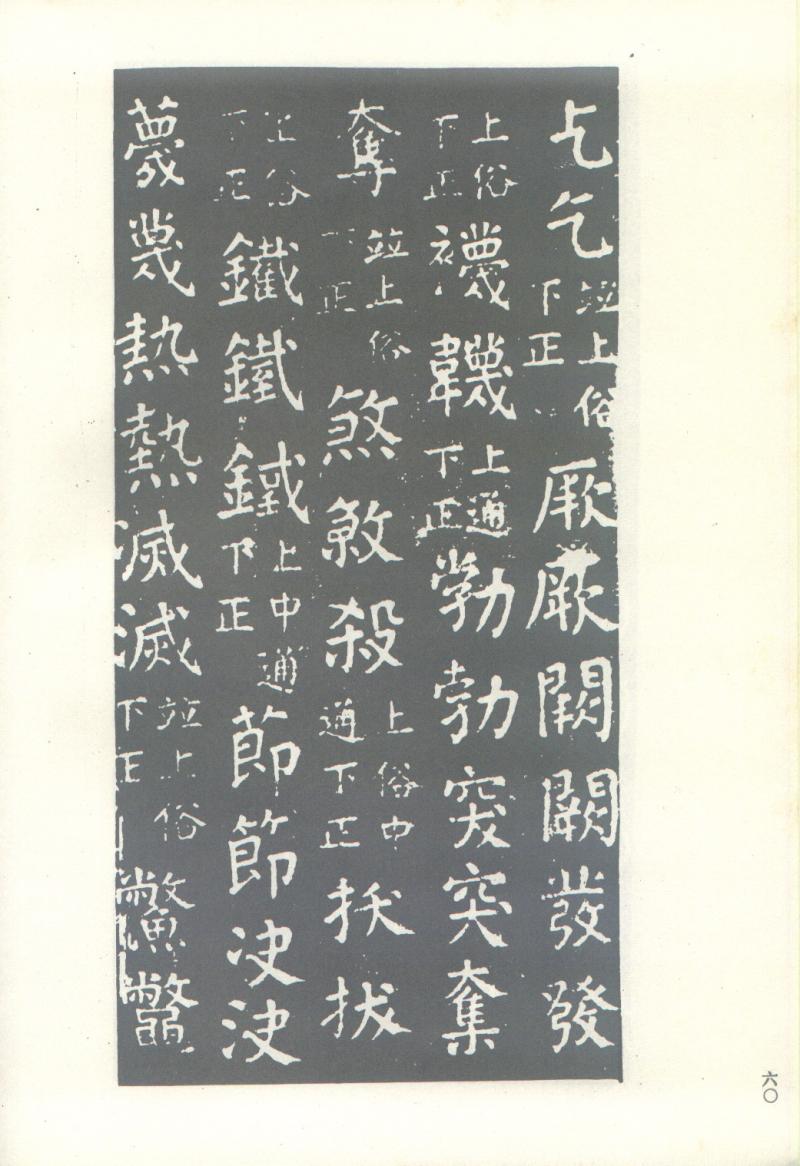 乞乞竝上俗下正厥厥闕闕發發
上俗下正襪韈上通下正勃勃突突奪
奪竝上俗下正煞煞殺上俗中通下正拔拔
上俗下正鐵鐵鐵上中通下正節節决決
薎蔑熱熱滅滅竝上俗下正
六〇